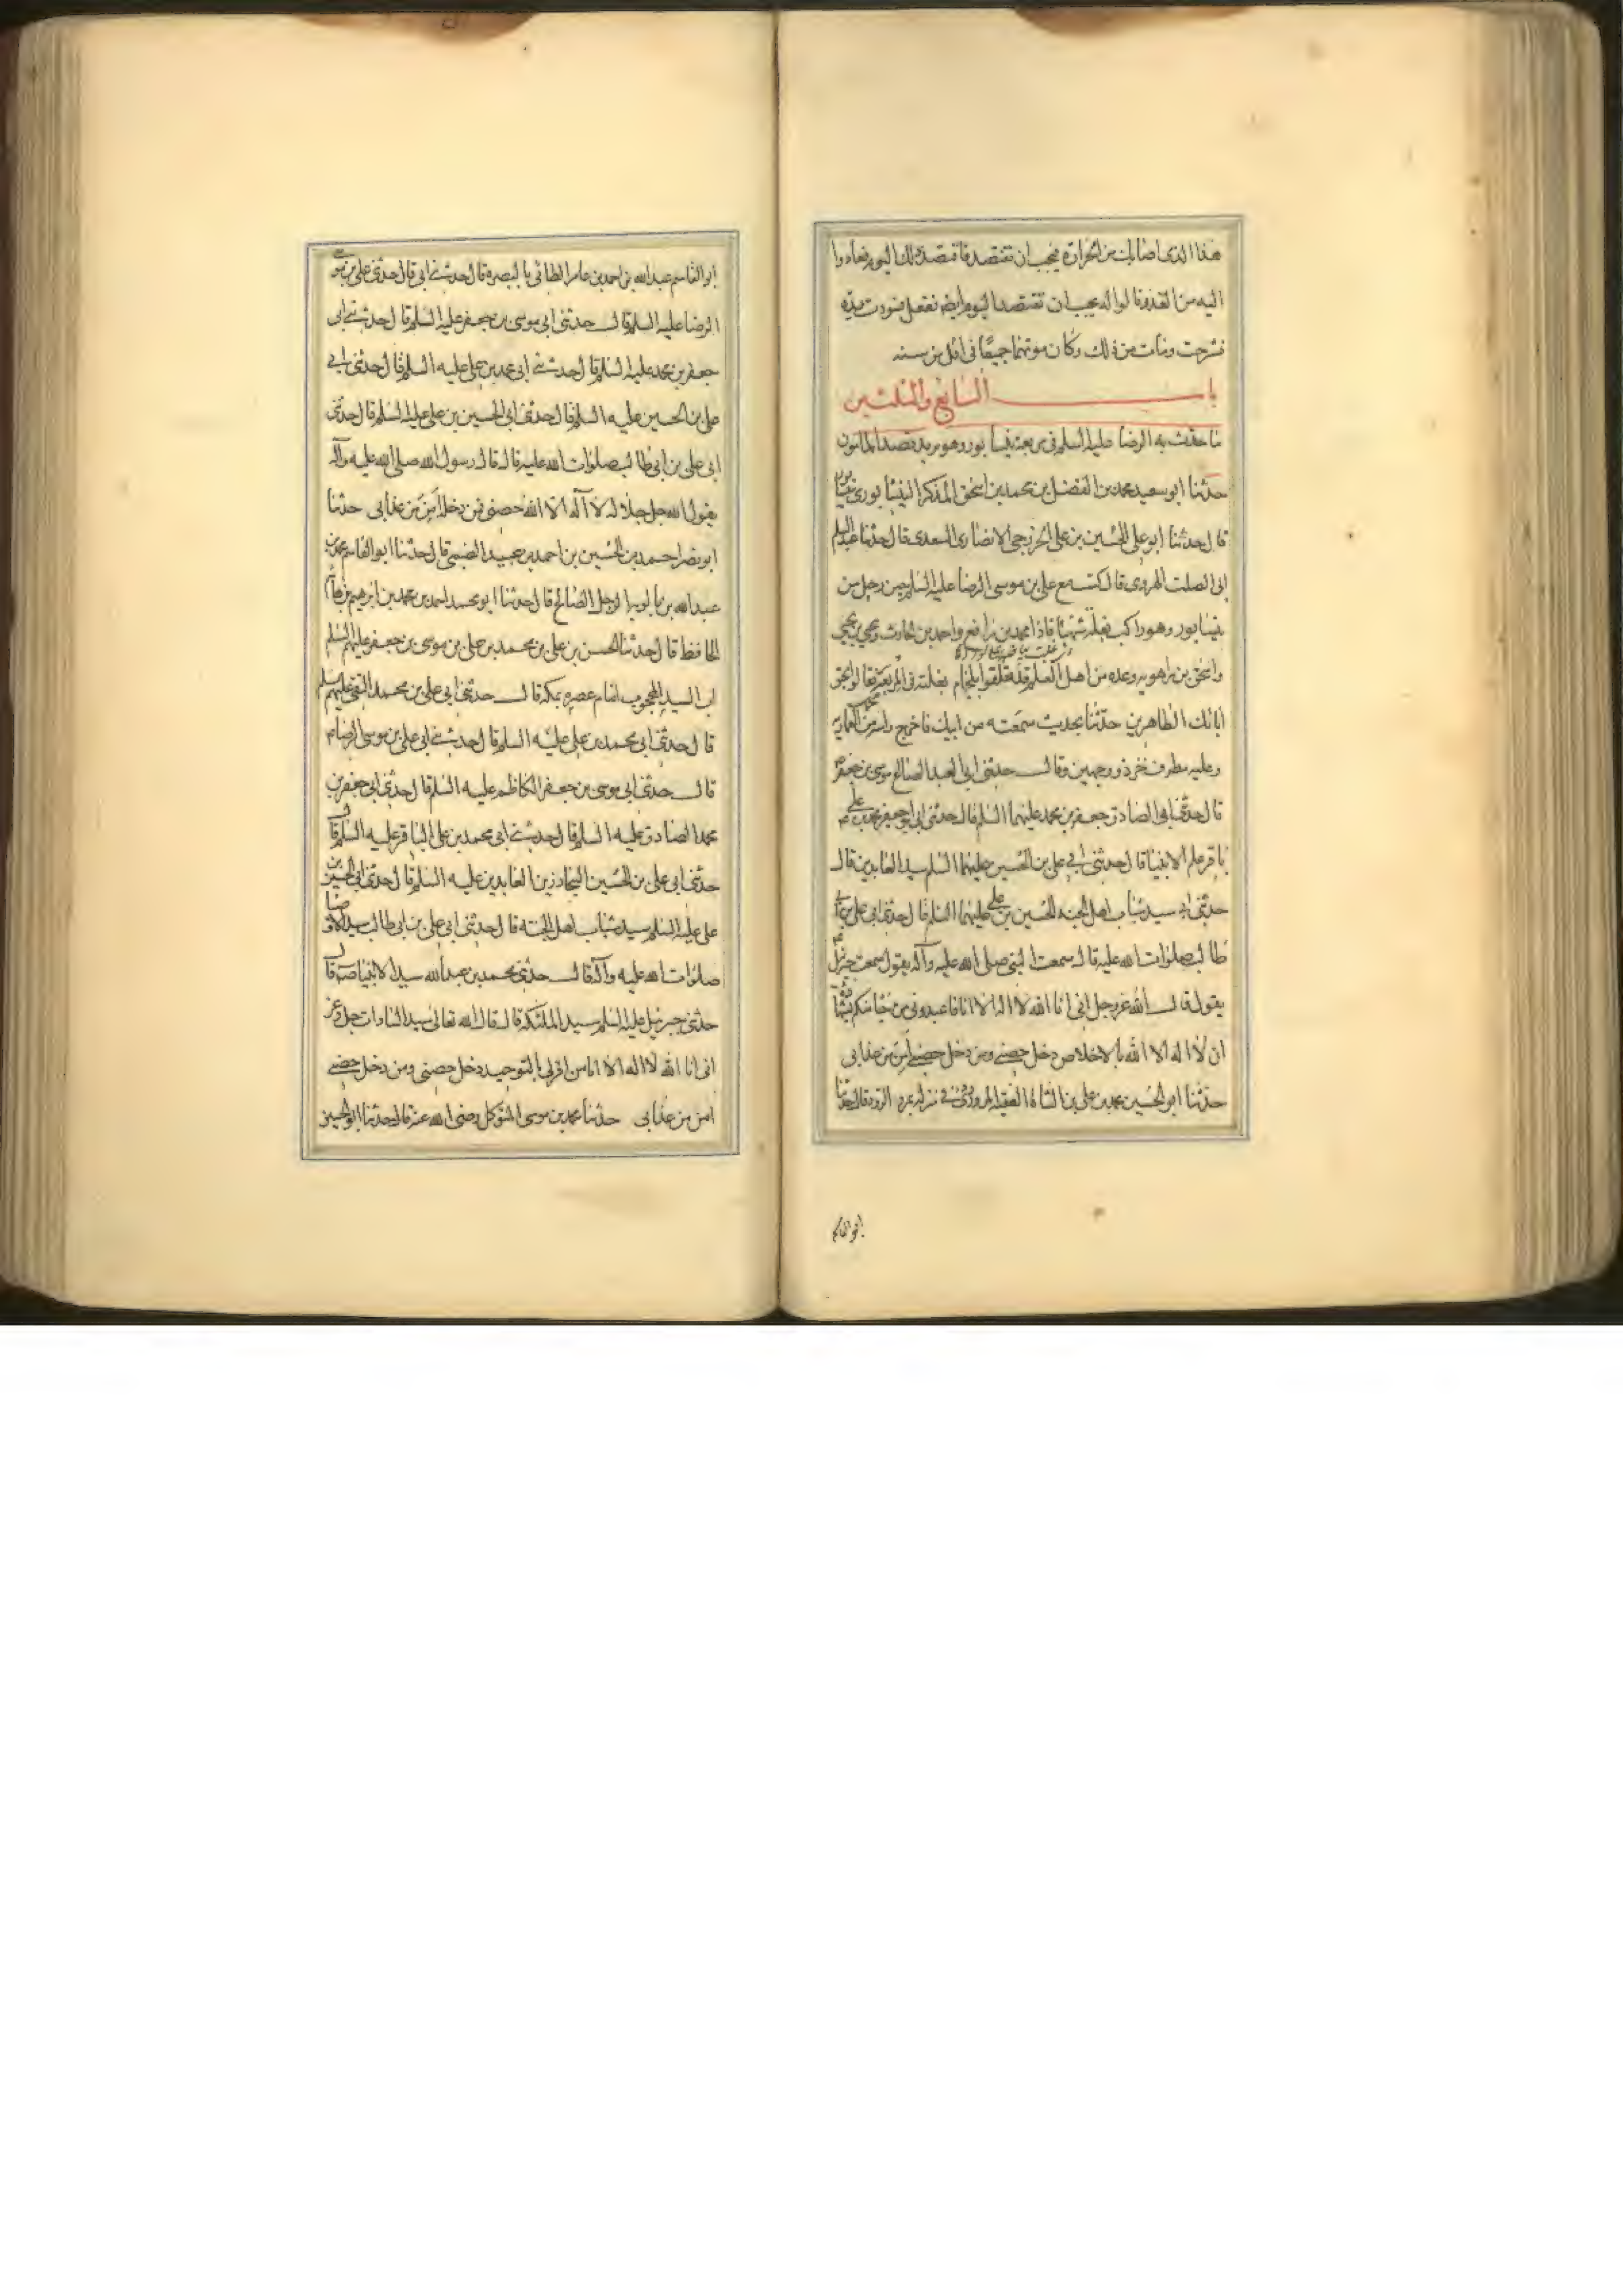 هذا الذى اصابك من الحرارة فيجب ان تفتصد فافتصد ذلك اليوم فعادوا
اليه من الغد فقالوا له يجب ان تفتصد اليوم ايضا ففعل فسودت يده
فشرحت ومات من ذلك وكان موتهما جميعًا فى اقل من سنه
باب السابع والثلثين
ما حدث به الرضا عليه السلم فى مربعة نيسابور وهو يريد قصد المامون
حدثنا ابو سعيد محمد بن الفضل بن محمد بن اسحق المذكر النيسابورى بنيسابور
قال حدثنا ابو على الحسين بن على الخزرجى الانصارى السعدى قال حدثنا عبد السلم
ابى الصلت الهروى قال كنت مع على بن موسى الرضا عليه السلم حين رحل من
نيسابور وهو راكب بغلة شهبا فاذا محمد بن رافع واحمد بن الحارث ويحيى بن يحيى
واسحق بن راهويه وعده من اهل العلم قد تعلقوا بلجام بغلته فى المربعة فقالوا بحق
ابائك الطاهرين حدثنا بحديث سمعته من ابيك فاخرج راسه من العمارية
وعليه مطرف خز ذو وجهين وقال حدثنى ابى العبد الصالح موسى بن جعفر
قال حدثنى ابى الصادق جعفر بن محمد عليهما السلم قال حدثنى ابى ابو جعفر محمد بن على
باقر علم الانبيا قال حدثنى ابى على بن الحسين عليهما السلم سيد العابدين قال
حدثنى ابى سيد شباب اهل الجنه الحسين بن على عليهما السلم قال حدثنى ابى على بن ابى
طالب صلوات الله عليه قال سمعت النبى صلى الله عليه وآله يقول سمعت جبرئيل
يقول قال الله عز وجل انى انا الله لا اله الا انا فاعبدونى من جا منكم بشهادة
ان لا اله الا الله بالاخلاص دخل حصنى ومن دخل حصنى امن من عذابى
حدثنا ابو الحسين محمد بن على بن الشاه الفقيه المروزى فى منزله بمرو الرود قال حدثنا
ابو القاسم
ابو القاسم عبد الله بن احمد بن عامر الطائى بالبصرة قال حدثنى ابى قال حدثنى على بن موسى
الرضا عليه السلم قال حدثنى ابى موسى بن جعفر عليه السلم قال حدثنى ابى
جعفر بن محمد عليه السلم قال حدثنى ابى محمد بن على عليه السلم قال حدثنى ابى
على بن الحسين عليه السلم قال حدثنى ابى الحسين بن على عليه السلم قال حدثنى
ابى على بن ابى طالب صلوات الله عليه قال قال رسول الله صلى الله عليه وآله
يقول الله جل جلاله لا آله الا الله حصنى فمن دخله امن من عذابى حدثنا
ابو نصر احمد بن الحسين بن احمد بن عبيد الضبى قال حدثنا ابو القاسم محمد بن
عبيد الله بن بابويه الرجل الصالح قال حدثنا ابو محمد احمد بن محمد بن ابرهيم بن هاشم
الحافظ قال حدثنا الحسن بن على بن محمد بن على بن موسى بن جعفر عليهم السلم
اب السيد المحجوب امام عصره بمكه قال حدثنى ابى على بن محمد النقى عليهم السلم
قال حدثنى ابى محمد بن على عليه السلم قال حدثنى ابى على بن موسى الرضا
قال حدثنى ابى موسى بن جعفر الكاظم عليه السلم قال حدثنى ابى جعفر بن
محمد الصادق عليه السلم قال حدثنى ابى محمد بن على الباقر عليه السلم قال
حدثنى ابى على بن الحسين السجاد زين العابدين عليه السلم قال حدثنى ابى الحسين بن
على عليه السلم سيد شباب اهل الجنته قال حدثنى ابى على بن ابى طالب سيد الاوصيا
صلوات الله عليه وآله قال حدثنى محمد بن عبد الله سيد الانبيا ص قال
حدثنى جبرئيل عليه السلم سيد الملئكه قال قال الله تعالى سيد السادات جل وعز
انى انا الله لا اله الا انا من اقر لى بالتوحيد دخل حصنى ومن دخل حصنى
امن من عذابى حدثنا محمد بن موسى المتوكل رضى الله عنه قال حدثنا ابو الحسين